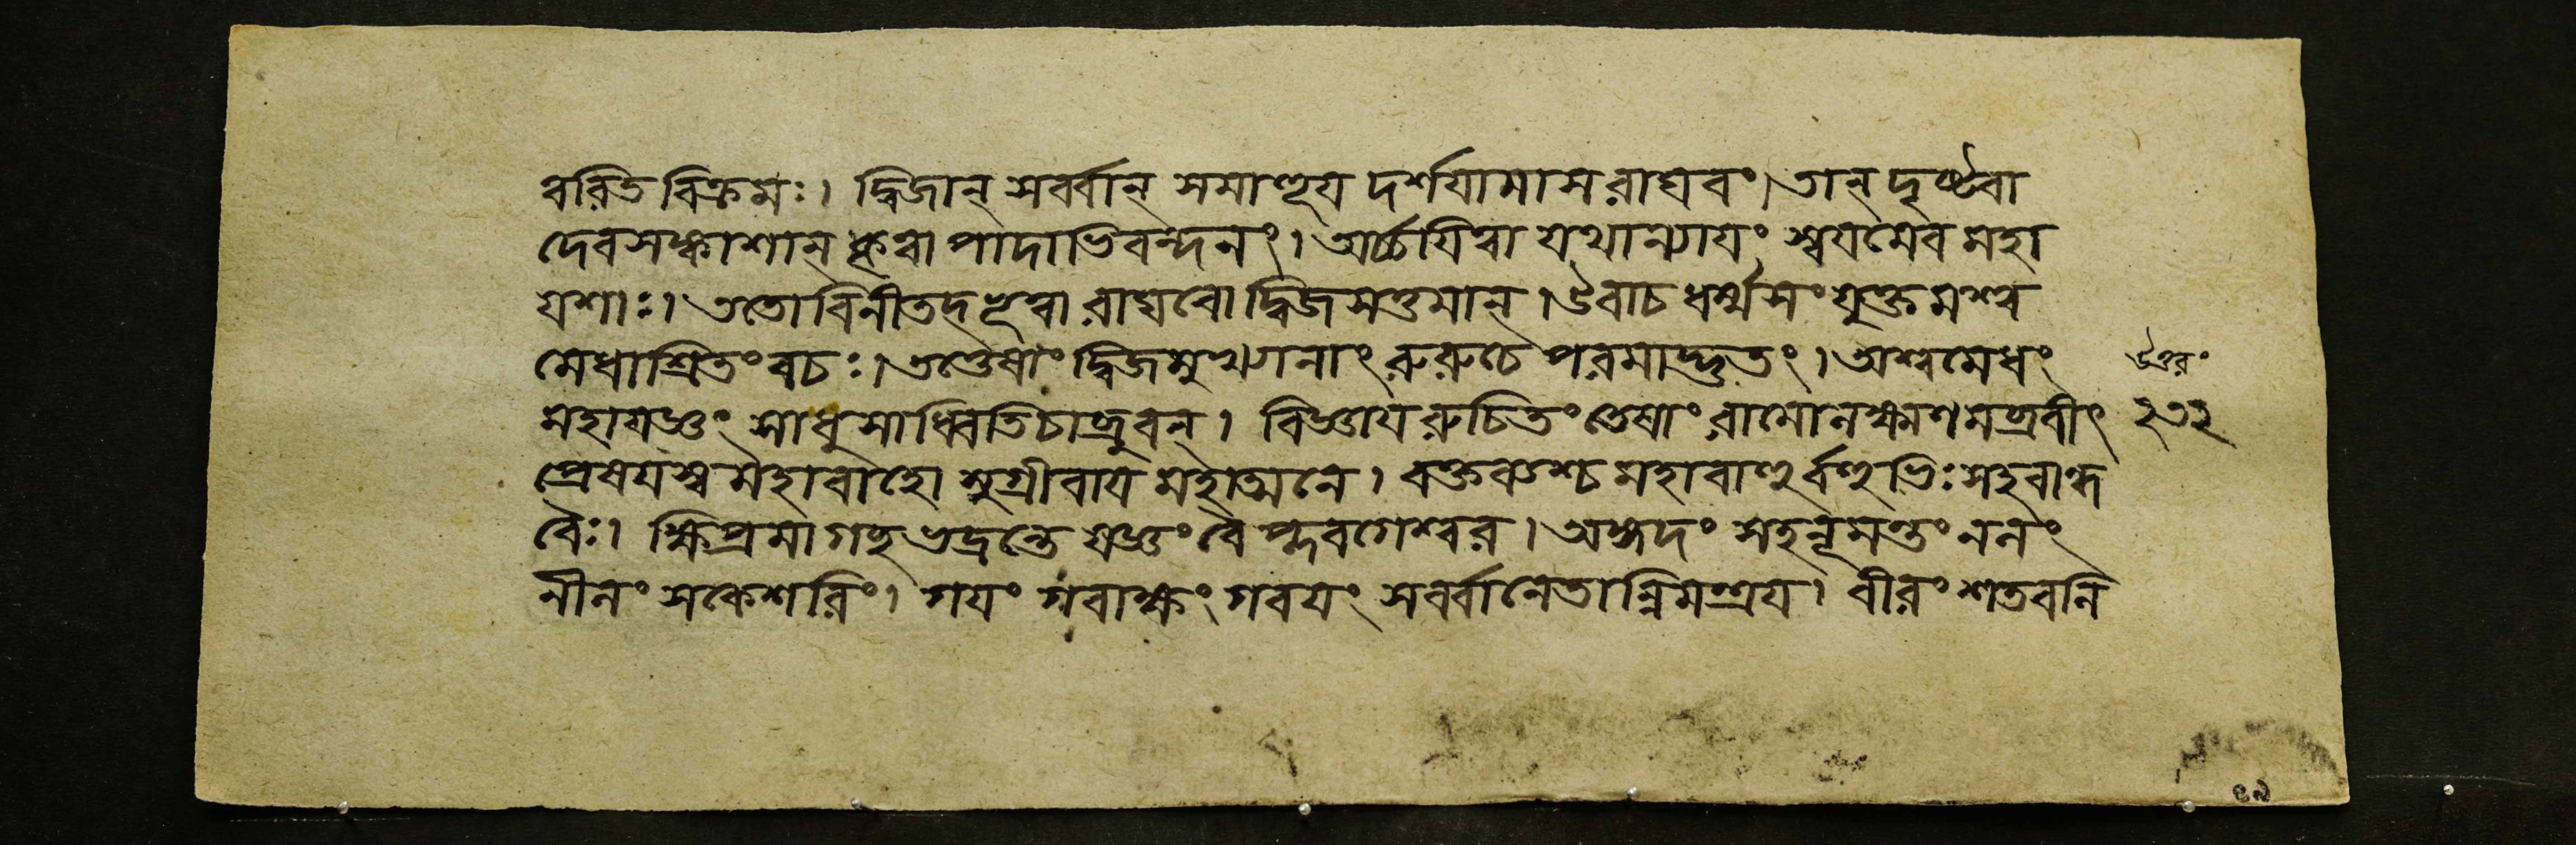 ত্বরিতবিক্রমঃ। দ্বিজান্ সর্ব্বান্ সমাহূয় দর্শয়ামাস রাঘবং। তান্ দৃষ্ট্বা
দেবসঙ্কাশান্ কৃত্বা পাদাভিবন্দনং। অর্চ্চয়িত্বা যথান্যায়ং স্বয়মেব মহা
যশাঃ। ততো বিনীতবদ্ভূত্বা রাঘবো দ্বিজসত্তমান্। উবাচ ধর্ম্মসংযুক্তমশ্ব
মেধাশ্রিতং বচঃ। তত্তেষাং দ্বিজমুখ্যানাং রুরুচে পরমাদ্ভুতং। অশ্বমেধং
মহাযজ্ঞং সাধুসাধ্বিতি চাব্রুবন্। বিজ্ঞায় রুচিতং তেষাং রামো লক্ষ্মণমব্রবীৎ
প্রেষয়স্ব মহাবাহো সুগ্রীবায় মহাত্মনে। বক্তব্যশ্চ মহাবাহুর্বহুভিঃ সহ বান্ধ
বৈঃ। ক্ষিপ্রমাগচ্ছ ভদ্রন্তে যজ্ঞং বৈ প্লবগেশ্বর। অঙ্গদং সহনূমন্তং নলং
নীলং সকেশরিং। গয়ং গবাক্ষং গবয়ং সর্ব্বানেতান্নিমন্ত্রয়। বীরং শতবলি
উত্তরং
২৭২